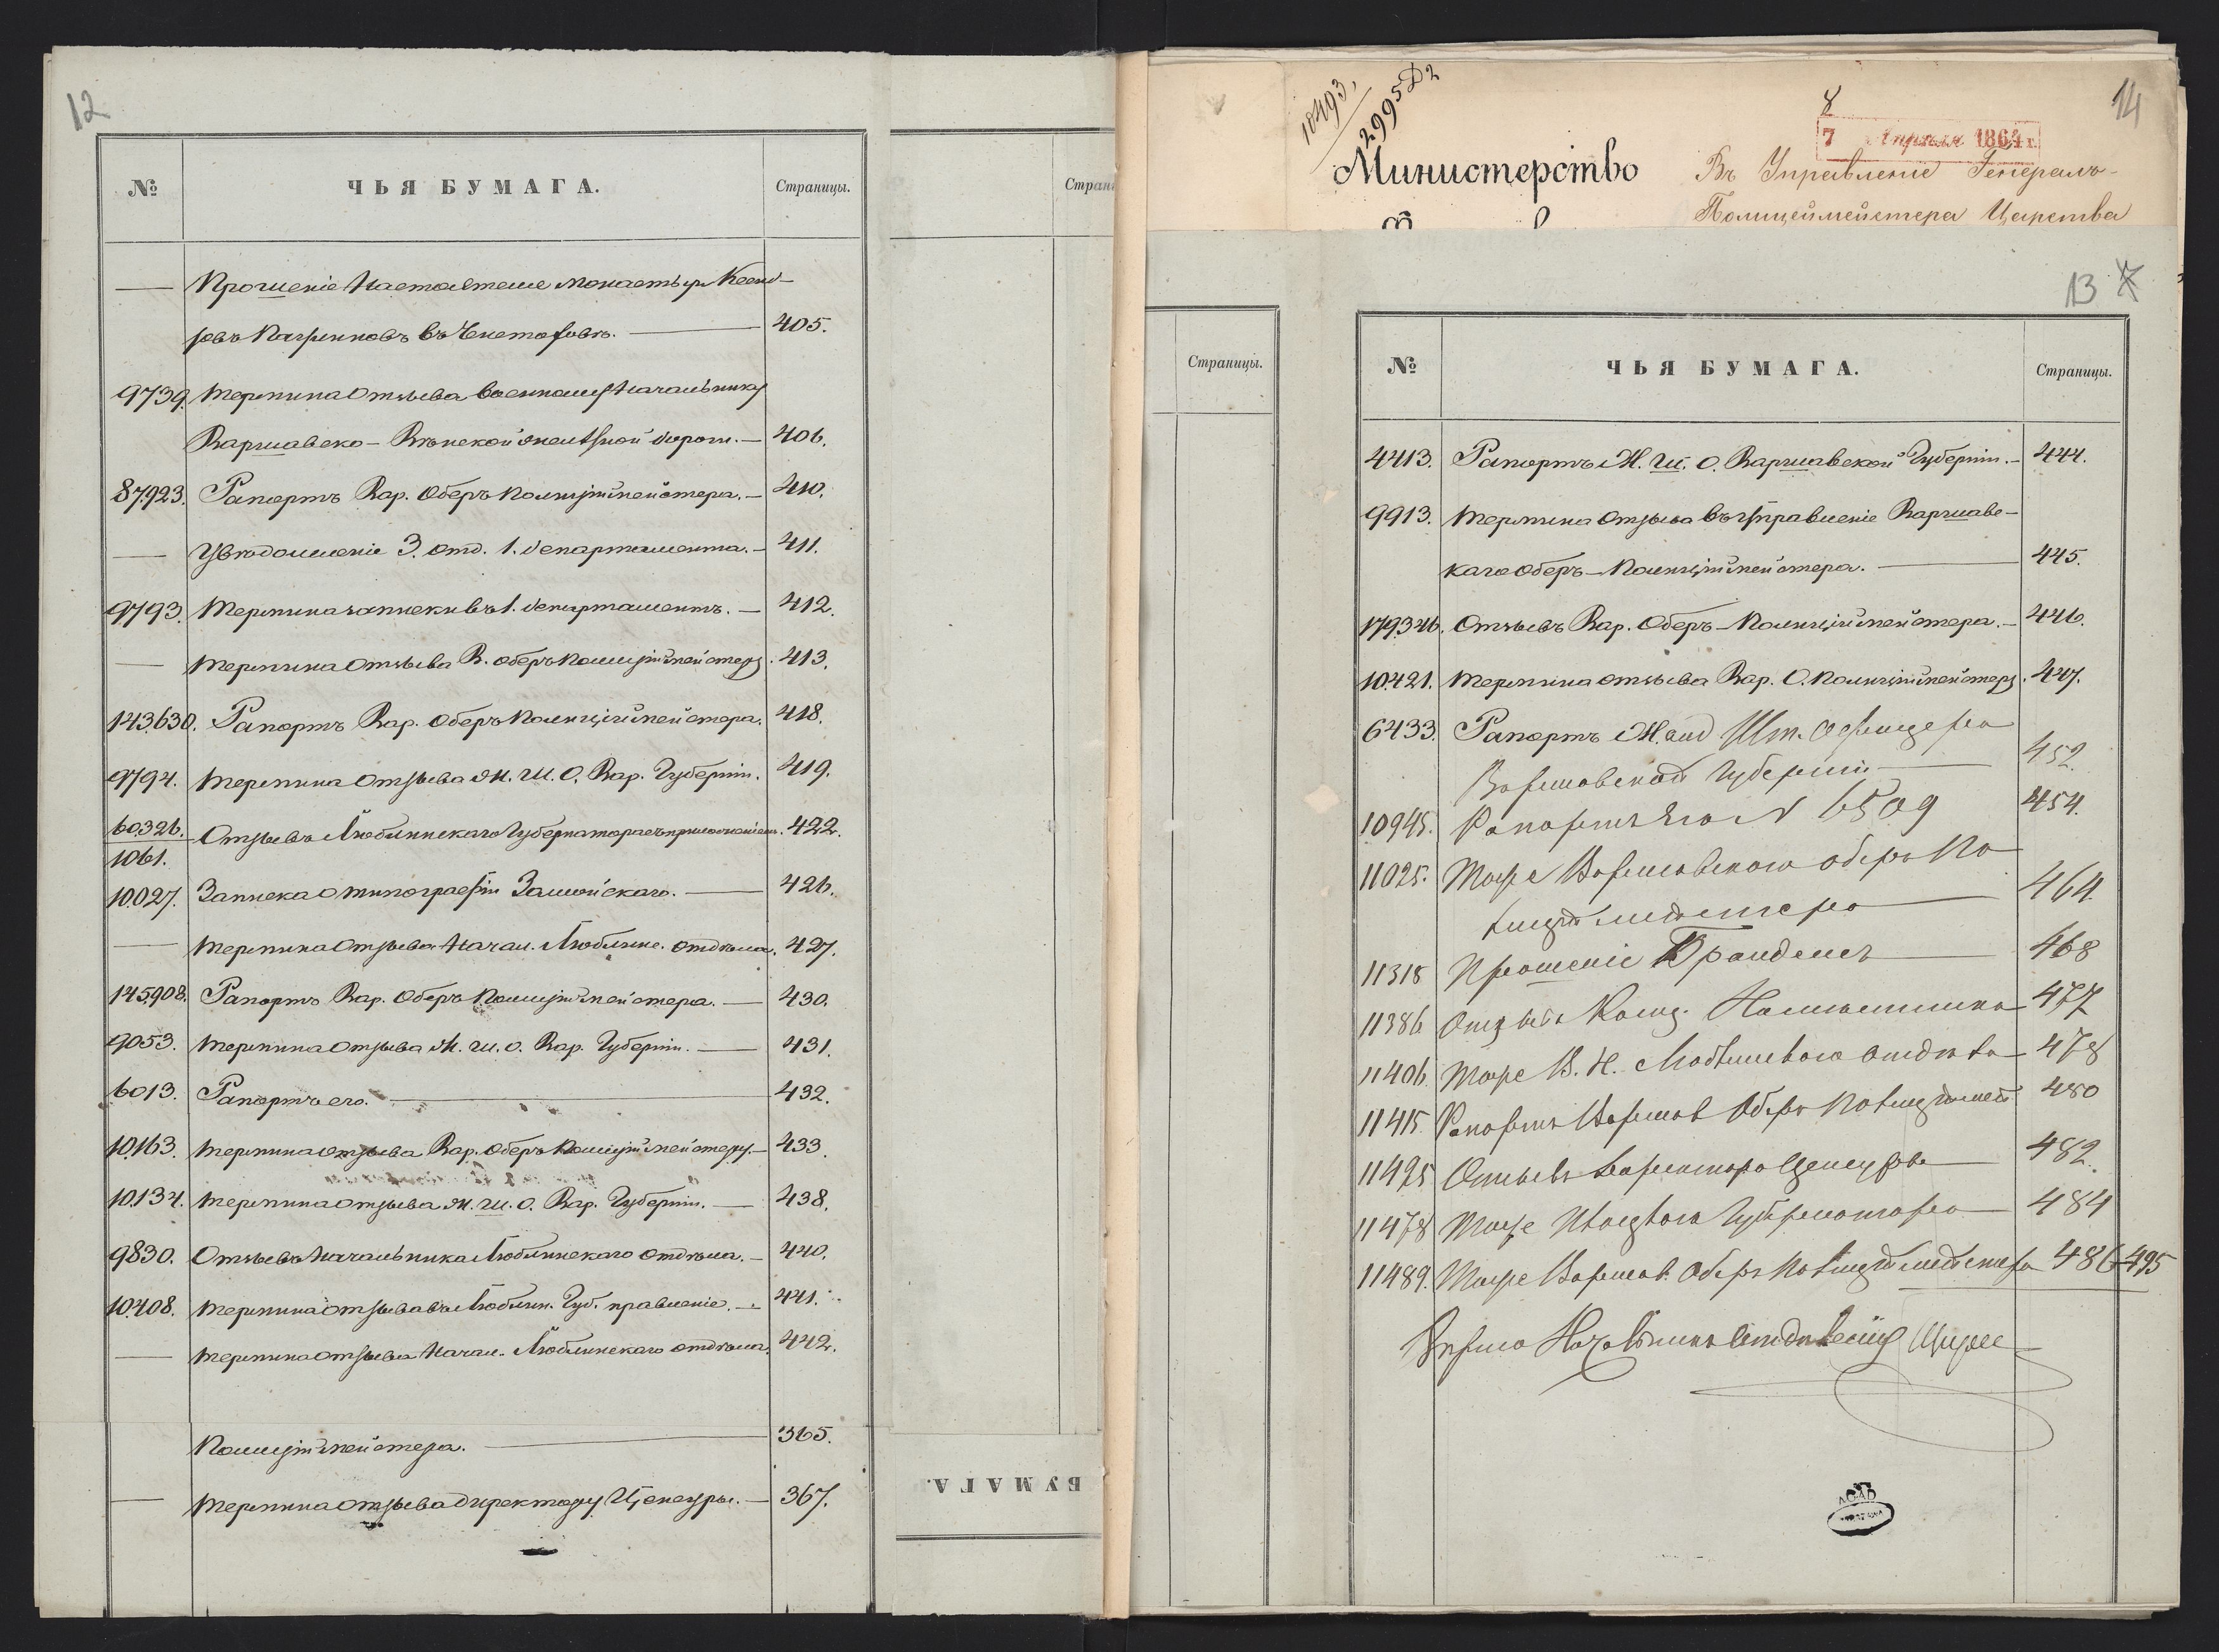 12
№ ЧЬЯ БУМАГА. Страницы.
— Прошеніе Настоятеля монастыря Ксенд-
зовъ Паулиновъ въ Ченстоховѣ. — 405.
9739. Терминна Отзыва Военному Начальнику
Варшавско-Вѣнской желѣзной дороги. — 406.
87923. Рапортъ Вар. Оберъ Полиціймейстера. — 410.
— Увѣдомленіе 3. отд. 1. департамента. — 411.
9793. Терминна записки въ 1. департаментъ. — 412.
— Терминна Отзыва В. Оберъ Полиціймейстеру. 413.
143630. Рапортъ Вар. Оберъ Полиціймейстера. 418.
9794. Терминна Отзыва Ж. Ш. О. Вар. Губерніи. 419.
60326. Отзывъ Люблинскаго Губернатора съ приложеніем. 422.
1061.
10.027. Записка о типографіи Замойскаго. — 426.
— Терминна Отзыва Начал. Люблинс. отдѣла. 427.
145908. Рапортъ Вар. Оберъ Полиціймейстера. — 430.
9053. Терминна Отзыва Ж. Ш. О. Вар. Губерніи. — 431.
6013. Рапортъ его. — 432.
10.163. Терминна отзыва Вар. Оберъ Полиціймейстеру. — 433.
10.134. Терминна отзыва Ж. Ш. О. Вар. Губерніи. — 438.
9830. Отзывъ Начальника Люблинскаго Отдѣла. — 440.
10.408. Терминна отзыва въ Люблин. Губ. правленіе. — 441.
— Терминна отзыва Начал. Люблинскаго отдѣла. 442.
Полиціймейстера. — 365.
— Терминна отзыва Директору Цензуры. — 367.
Страни
БУМАГА.
10493,
2995 Д2
8
7 Апрѣля 1864 г.
14
Министерство
Въ Управленіе Генералъ-
Полицеймейстера Царства
13
Страницы.
№ ЧЬЯ БУМАГА. Страницы.
4413. Рапортъ Ж. Ш. О. Варшавской Губерніи. — 444.
9913. Терминна Отзыва въ Управленіе Варшавс-
каго Оберъ-Полиціймейстера. — 445.
179346. Отзывъ Вар. Оберъ-Полиціймейстера. — 446.
10.421. Терминна отзыва Вар. О. Полиціймейстеру. 447.
6433. Рапортъ Жанд Шт. Офицера
Варшавской Губерніи — 452.
10945. Рапортъ Его N 6509 454.
11025. Тоже Варшавскаго Оберъ По
лиціймейстера — 464.
11318 Прошеніе Бранделя — 468
11386 Отзывъ Канц. Намѣстника — 477
11406. Тоже В. Н. Люблинскаго отдѣла — 478
11415. Рапортъ Варшав Оберъ Полиціймей 480
11425 Отзывъ Директора Цензуры — 482.
11478 Тоже Плоцкаго Губернатора — 484
11489. Тоже Варшав. Оберъ Полиціймейстера 486-495
Вѣрно Начальникъ Отдѣленія
AGAD